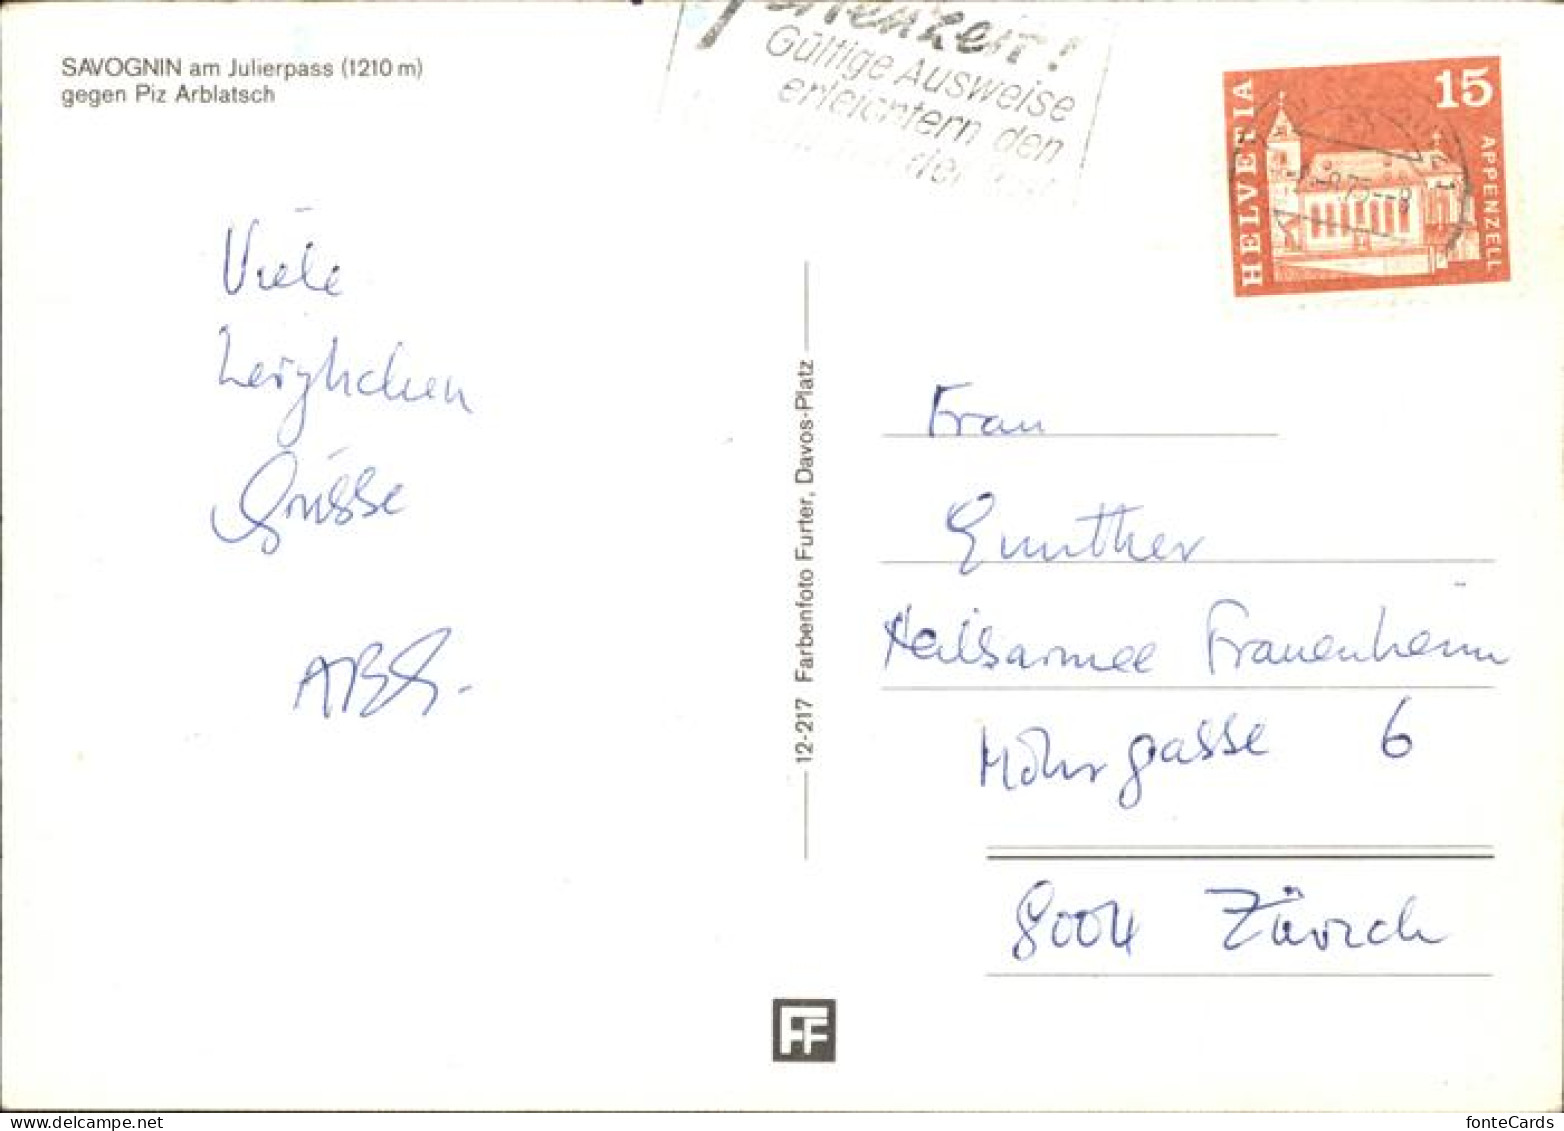 SAVOGNIN am Julierpass (1210 m)
gegen Piz Arblatsch
Gültige Ausweise
erleichtern den
HELVETIA
15
APPENZELL
Viele
herzlichen
Grüsse
12-217 Farbenfoto Furter, Davos-Platz
Frau
Gunther
Heilsarmee Frauenheim
Molkrgasse 6
8004 Zürich
FF
fonteCards